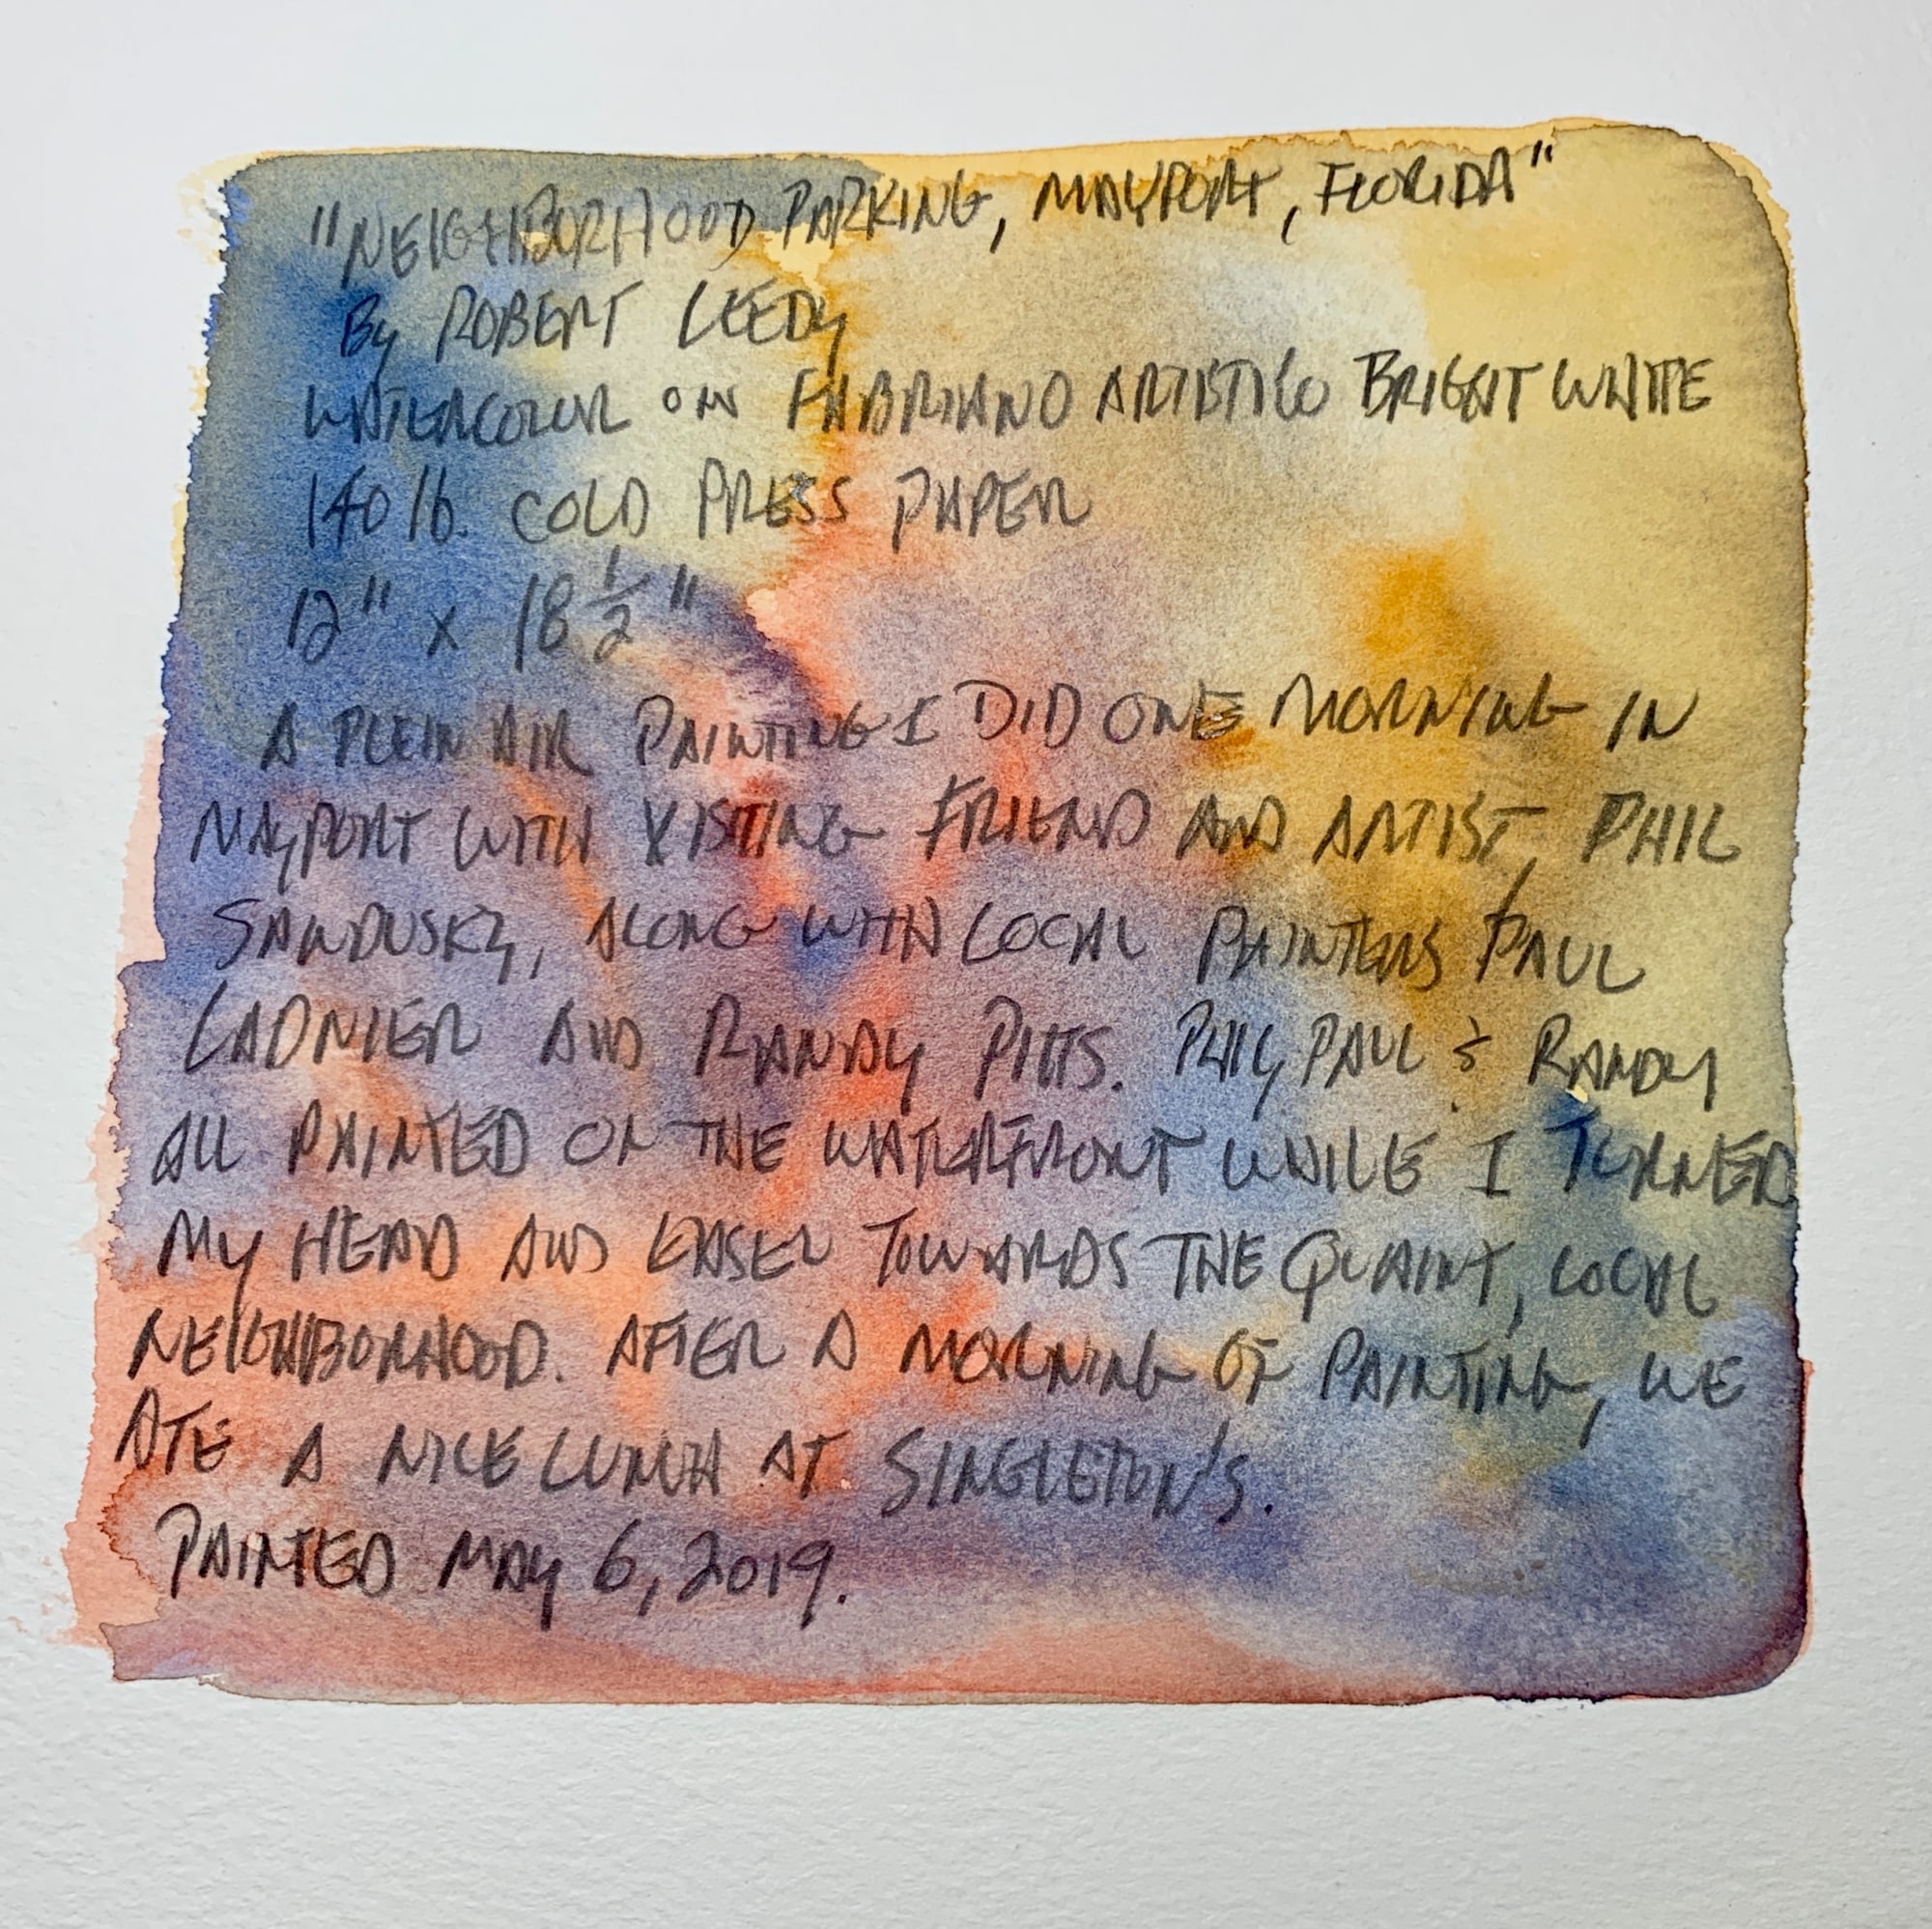 "NEIGHBORHOOD PARKING, MAYPORT, FLORIDA"
By ROBERT LEEDY
WATERCOLOR ON FABRIANO ARTISTICO BRIGHT WHITE
140 lb. COLD PRESS PAPER
12" x 18 1/2"
A PLEIN AIR PAINTING I DID ONE MORNING IN
MAYPORT WITH VISTING FRIEND AND ARTIST, PHIL
SANDUSKY, ALONG WITH LOCAL PAINTERS PAUL
LADNIER AND RANDY PITTS. PHIL, PAUL & RANDY
ALL PAINTED ON THE WATERFRONT WHILE I TURNED
MY HEAD AND EASEL TOWARDS THE QUAINT, LOCAL
NEIGHBORHOOD. AFTER A MORNING OF PAINTING, WE
ATE A NICE LUNCH AT SINGLETON'S.
PAINTED MAY 6, 2019.